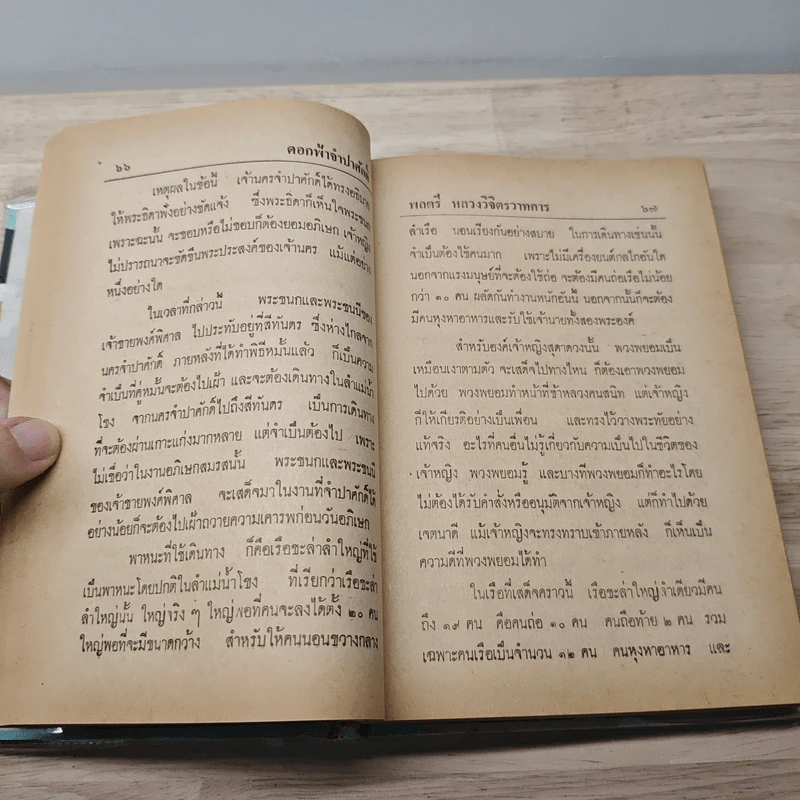 ๖๖ ดอกฟ้าจำปาศักดิ์
เหตุผลในข้อนี้ เจ้านครจำปาศักดิ์ได้ทรงอธิบาย
ให้พระธิดาฟังอย่างชัดแจ้ง ซึ่งพระธิดาก็เห็นใจพระชนก
เพราะฉะนั้น จะชอบหรือไม่ชอบก็ต้องยอมอภิเษก เจ้าหญิง
ไม่ปรารถนาจะขัดขืนพระประสงค์ของเจ้านคร แม้แต่อย่าง
หนึ่งอย่างใด
ในเวลาที่กล่าวนี้ พระชนกและพระชนนีของ
เจ้าชายพงศ์พิศาล ไปประทับอยู่ที่สีทันดร ซึ่งห่างไกลจาก
นครจำปาศักดิ์ ภายหลังที่ได้ทำพิธีหมั้นแล้ว ก็เป็นความ
จำเป็นที่คู่หมั้นจะต้องไปเฝ้า และจะต้องเดินทางในลำแม่น้ำ
โขง จากนครจำปาศักดิ์ไปถึงสีทันดร เป็นการเดินทาง
ที่จะต้องผ่านเกาะแก่งมากหลาย แต่จำเป็นต้องไป เพราะ
ไม่เชื่อว่าในงานอภิเษกสมรสนั้น พระชนกและพระชนนี
ของเจ้าชายพงศ์พิศาล จะเสด็จมาในงานที่จำปาศักดิ์ได้
อย่างน้อยก็จะต้องไปเฝ้าถวายความเคารพก่อนวันอภิเษก
พาหนะที่ใช้เดินทาง ก็คือเรือชะล่าลำใหญ่ที่ใช้
เป็นพาหนะโดยปกติในลำแม่น้ำโขง ที่เรียกว่าเรือชะล่า
ลำใหญ่นั้น ใหญ่จริง ๆ ใหญ่พอที่คนจะลงได้ตั้ง ๒๐ คน
ใหญ่พอที่จะมีขนาดกว้าง สำหรับให้คนนอนขวางกลาง
พลตรี หลวงวิจิตรวาทการ ๖๗
ลำเรือ นอนเรียงกันอย่างสบาย ในการเดินทางเช่นนั้น
จำเป็นต้องใช้คนมาก เพราะไม่มีเครื่องยนต์กลไกอันใด
นอกจากแรงมนุษย์ที่จะต้องใช้ถ่อ จะต้องมีคนถ่อเรือไม่น้อย
กว่า ๑๐ คน ผลัดกันทำงานหนักอันนี้ นอกจากนั้นก็จะต้อง
มีคนหุงหาอาหารและรับใช้เจ้านายทั้งสองพระองค์
สำหรับองค์เจ้าหญิงสุดาดวงนั้น พวงพยอมเป็น
เหมือนเงาตามตัว จะเสด็จไปทางไหน ก็ต้องเอาพวงพยอม
ไปด้วย พวงพยอมทำหน้าที่ข้าหลวงคนสนิท แต่เจ้าหญิง
ก็ให้เกียรติอย่างเป็นเพื่อน และทรงไว้วางพระทัยอย่าง
แท้จริง อะไรที่คนอื่นไม่รู้เกี่ยวกับความเป็นไปในชีวิตของ
เจ้าหญิง พวงพยอมรู้ และบางทีพวงพยอมก็ทำอะไรโดย
ไม่ต้องได้รับคำสั่งหรืออนุมัติจากเจ้าหญิง แต่ก็ทำไปด้วย
เจตนาดี แม้เจ้าหญิงจะทรงทราบเข้าภายหลัง ก็เห็นเป็น
ความดีที่พวงพยอมได้ทำ
ในเรือที่เสด็จคราวนี้ เรือชะล่าใหญ่ลำเดียวมีคน
ถึง ๑๙ คน คือคนถ่อ ๑๐ คน คนถือท้าย ๒ คน รวม
เฉพาะคนเรือเป็นจำนวน ๑๒ คน คนหุงหาอาหาร และ